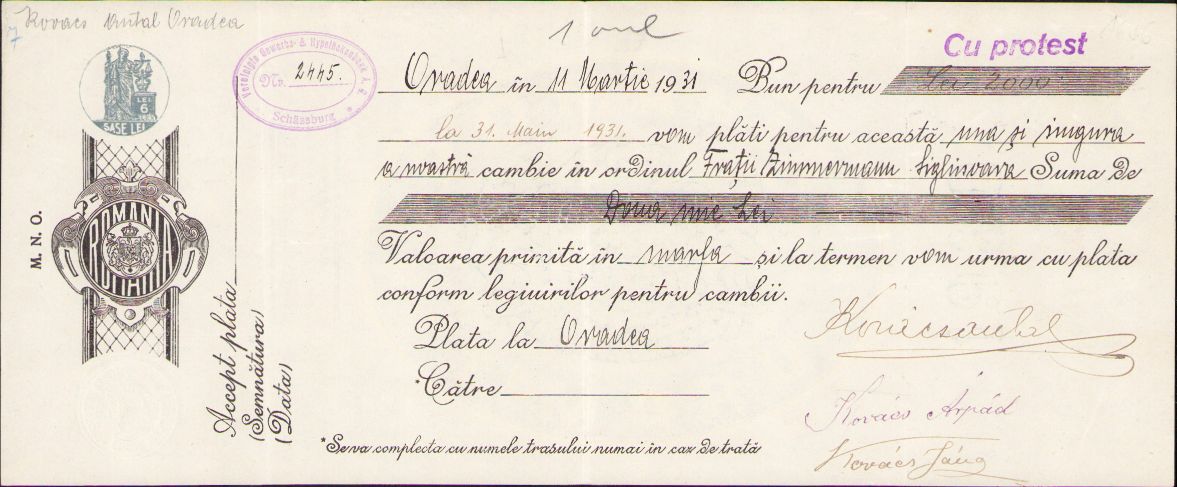 Kovacs Antal Oradea
7
LEI
6
SASE LEI
M. N. O.
ROMANIA
ROMANIA
Accept plata
(Semnătura)
(Data)
Vereinigte Gewerbe- & Hypothekenbank A. G.
Nr. 2445.
Schässburg
Cu protest
Oradea în 11 Martie 1931 Bun pentru Lei 2000
la 31. Main 1931. vom plăti pentru această una și singura
a noastră cambie în ordinul Frații Zimmermann Sighisoara Suma de
Doua mie Lei
Valoarea primită în marfa și la termen vom urma cu plata
conform legiuirilor pentru cambii.
Plata la Oradea
*Către
*Se va complecta cu numele trasului numai în caz de trată
Kovácsantal
Kovács Árpád
Kovács